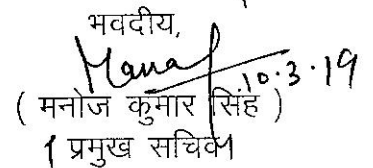 भवदीय,
10.3.19
( मनोज कुमार सिंह )
प्रमुख सचिव